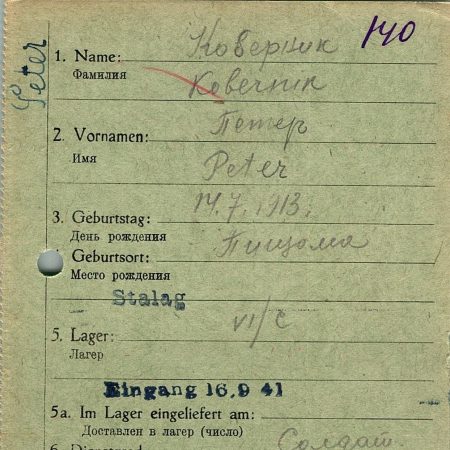 Peter
140
1. Name: Коверник
Фамилия Ковечник
2. Vornamen: Петер
Имя Peter
3. Geburtstag: 14.7.1913.
День рождения
Geburtsort:
Место рождения
Stalag
VI/C
5. Lager:
Лагер
Eingang 16.9 41
5a. Im Lager eingeliefert am:
Доставлен в лагер (число)
Солдат.